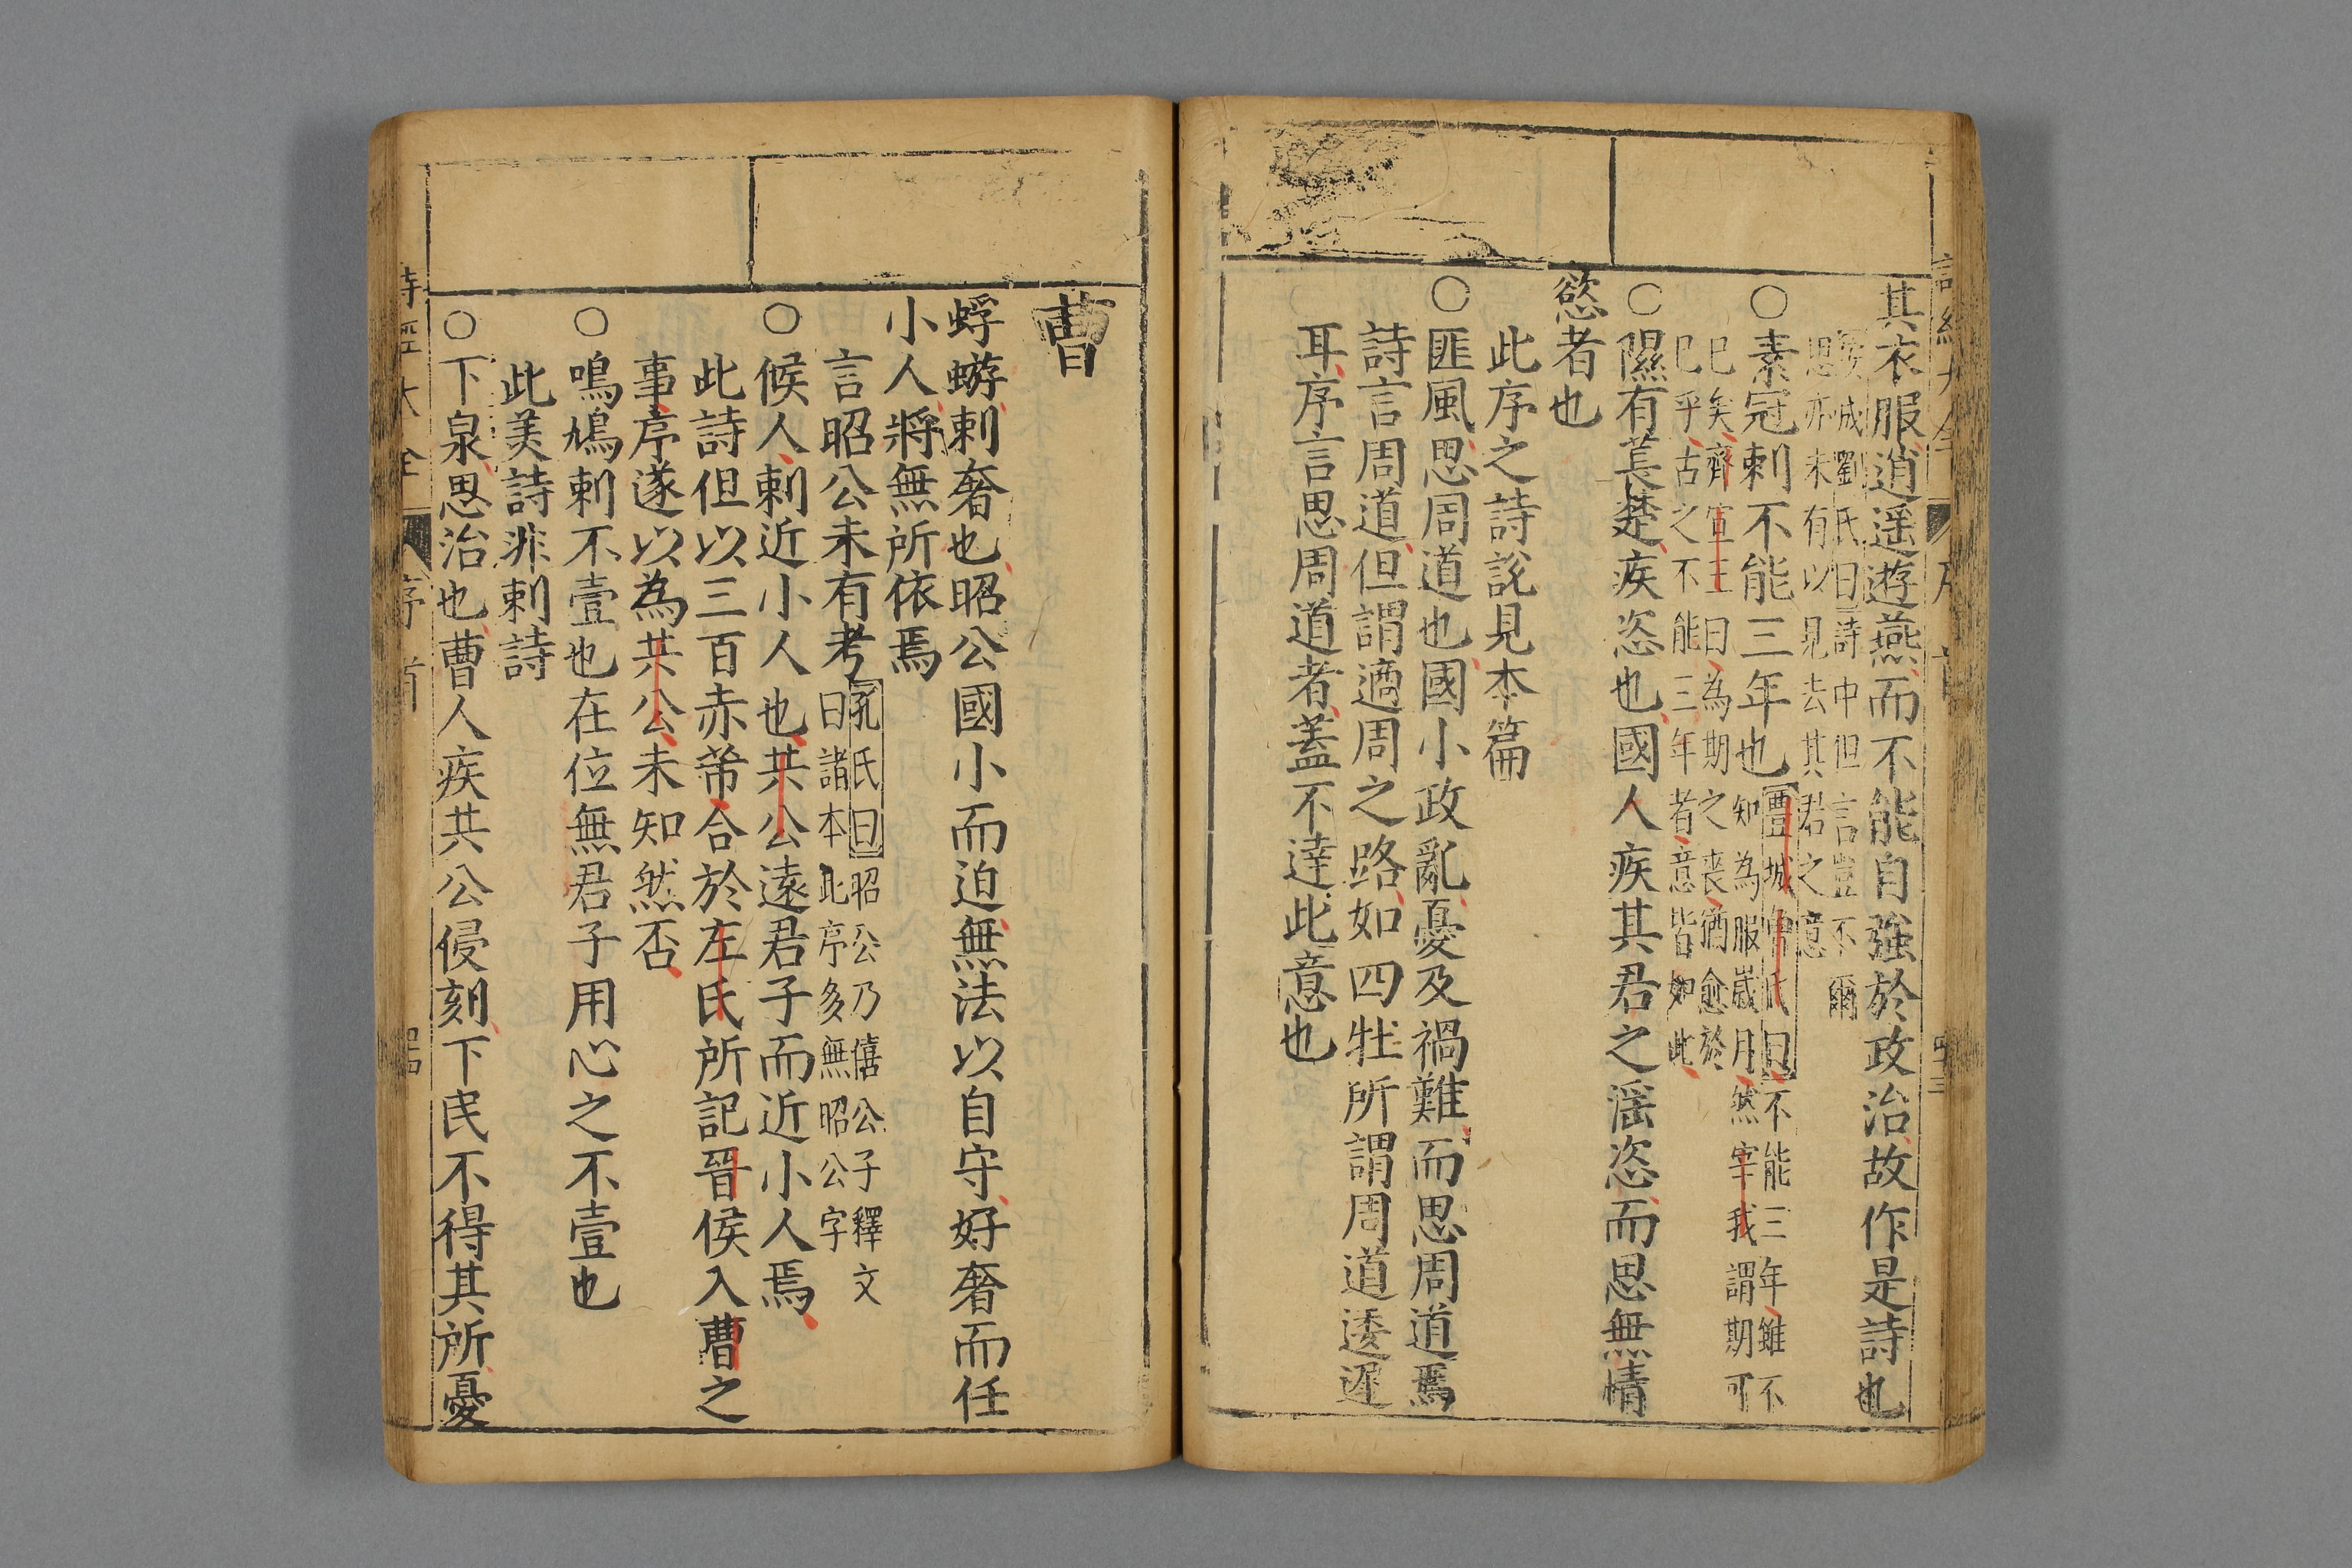 其衣服逍遥遊燕而不能自強於政治故作是詩也
安成劉氏曰詩中但言豈不爾
思亦未有以見去其君之意
○素冠刺不能三年也
豐城朱氏曰不能三年雖不
知為服嵗月然宰我謂期可
巳矣齊宣王曰為期之喪猶愈於
巳乎古之不能三年者意皆如此
○隰有萇楚疾恣也國人疾其君之滛恣而思無情
慾者也
此序之詩說見本篇
○匪風思周道也國小政亂憂及禍難而思周道焉
詩言周道但謂適周之路如四牡所謂周道逶遲
耳序言思周道者蓋不達此意也
曹
蜉蝣刺奢也昭公國小而迫無法以自守好奢而任
小人將無所依焉
言昭公未有考
孔氏曰昭公乃僖公子釋文
曰諸本此序多無昭公字
○候人刺近小人也共公遠君子而近小人焉
此詩但以三百赤芾合於左氏所記晉侯入曹之
事序遂以為共公未知然否
○鳴鳩刺不壹也在位無君子用心之不壹也
此美詩非刺詩
○下泉思治也曹人疾共公侵刻下民不得其所憂
詩經大全 序首